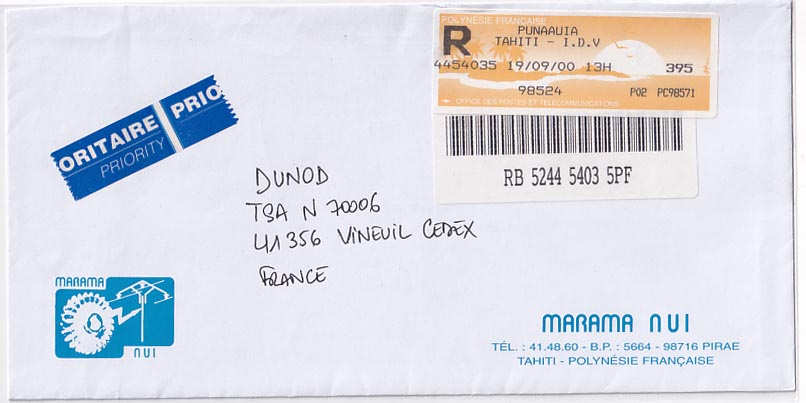 POLYNÉSIE FRANÇAISE
R PUNAAUIA
TAHITI - I.D.V
4454035 19/09/00 13H 395
98524 P02 PC98571
OFFICE DES POSTES ET TÉLÉCOMMUNICATIONS
RB 5244 5403 5PF
ORITAIRE PRIO
PRIORITY
DUNOD
TSA N 70006
41356 VINEUIL CEDEX
FRANCE
MARAMA
NUI
MARAMA NUI
TÉL. : 41.48.60 - B.P. : 5664 - 98716 PIRAE
TAHITI - POLYNÉSIE FRANÇAISE